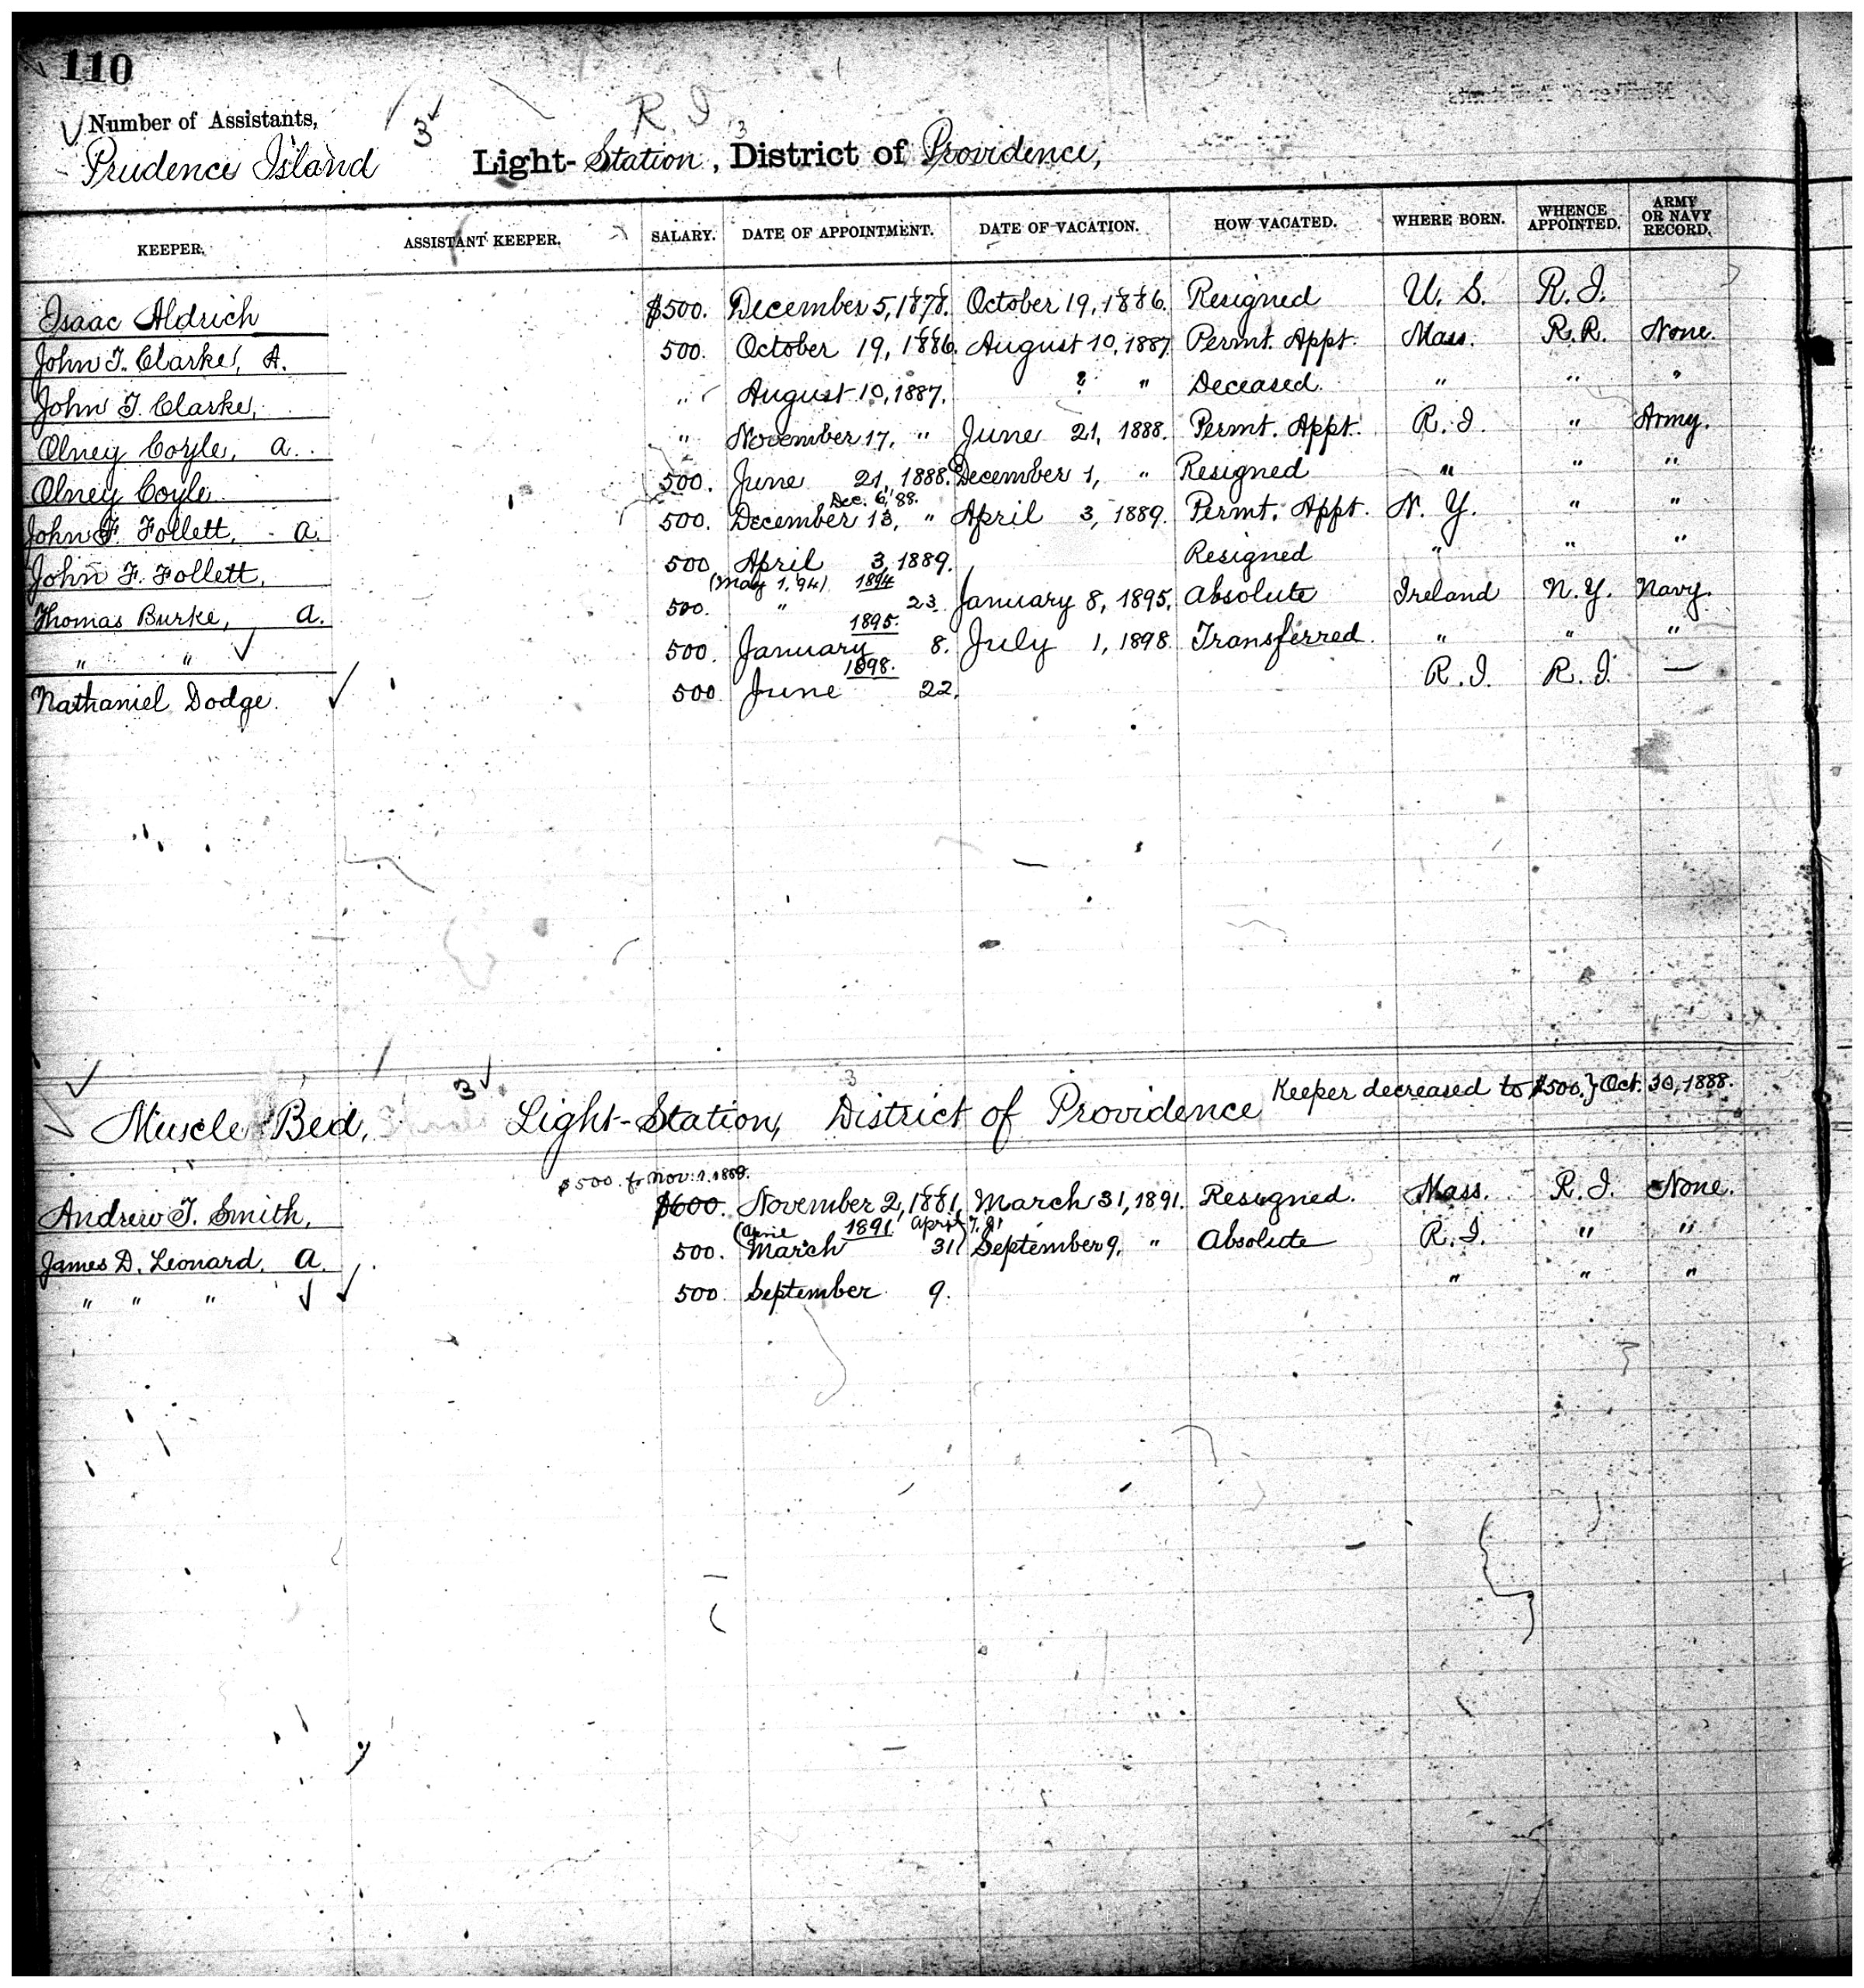 110
R. I.
Number of Assistants,
3
3
Prudence Island Light-Station, District of Providence,
KEEPER. ASSISTANT KEEPER. SALARY. DATE OF APPOINTMENT. DATE OF VACATION. HOW VACATED. WHERE BORN. WHENCE APPOINTED. ARMY OR NAVY RECORD.
Isaac Aldrich $500. December 5, 1878. October 19, 1886. Resigned U. S. R. I.
John T. Clarke, A. 500. October 19, 1886. August 10, 1887. Permt. Appt. Mass. R. R. None.
John T. Clarke, " August 10, 1887. ? " Deceased. " " "
Olney Coyle, a. " November 17, " June 21, 1888. Permt. Appt. R. I. " Army.
Olney Coyle 500. June 21, 1888. December 1, " Resigned " " "
Dec. 6, '88.
John F. Follett, a. 500. December 13, " April 3, 1889. Permt. Appt. N. Y. " "
John F. Follett, 500 April 3, 1889. Resigned " " "
(May 1, '94) 1894
Thomas Burke, a. 500. " 23. January 8, 1895. Absolute Ireland N. Y. Navy.
1895.
" " 500. January 8. July 1, 1898. Transferred. " " "
1898.
Nathaniel Dodge. 500 June 22. R. I. R. I. —
3
3
Keeper decreased to $500.} Oct. 30, 1888.
Muscle Bed, Light-Station, District of Providence
$500. fr Nov. 1. 1888.
Andrew T. Smith, $600. November 2, 1881. March 31, 1891. Resigned. Mass. R. I. None.
1891. April 7. 91
James D. Leonard, a. 500. March 31. September 9, " Absolute R. I. " "
" " " 500. September 9. " " "